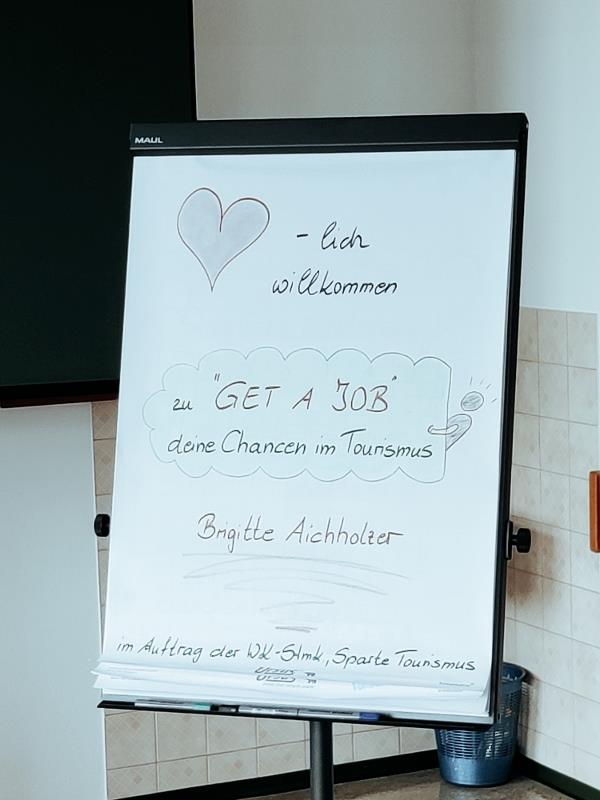 MAUL
- lich
willkommen
zu "GET A JOB"
deine Chancen im Tourismus
Brigitte Aichholzer
im Auftrag der WK-Stmk., Sparte Tourismus